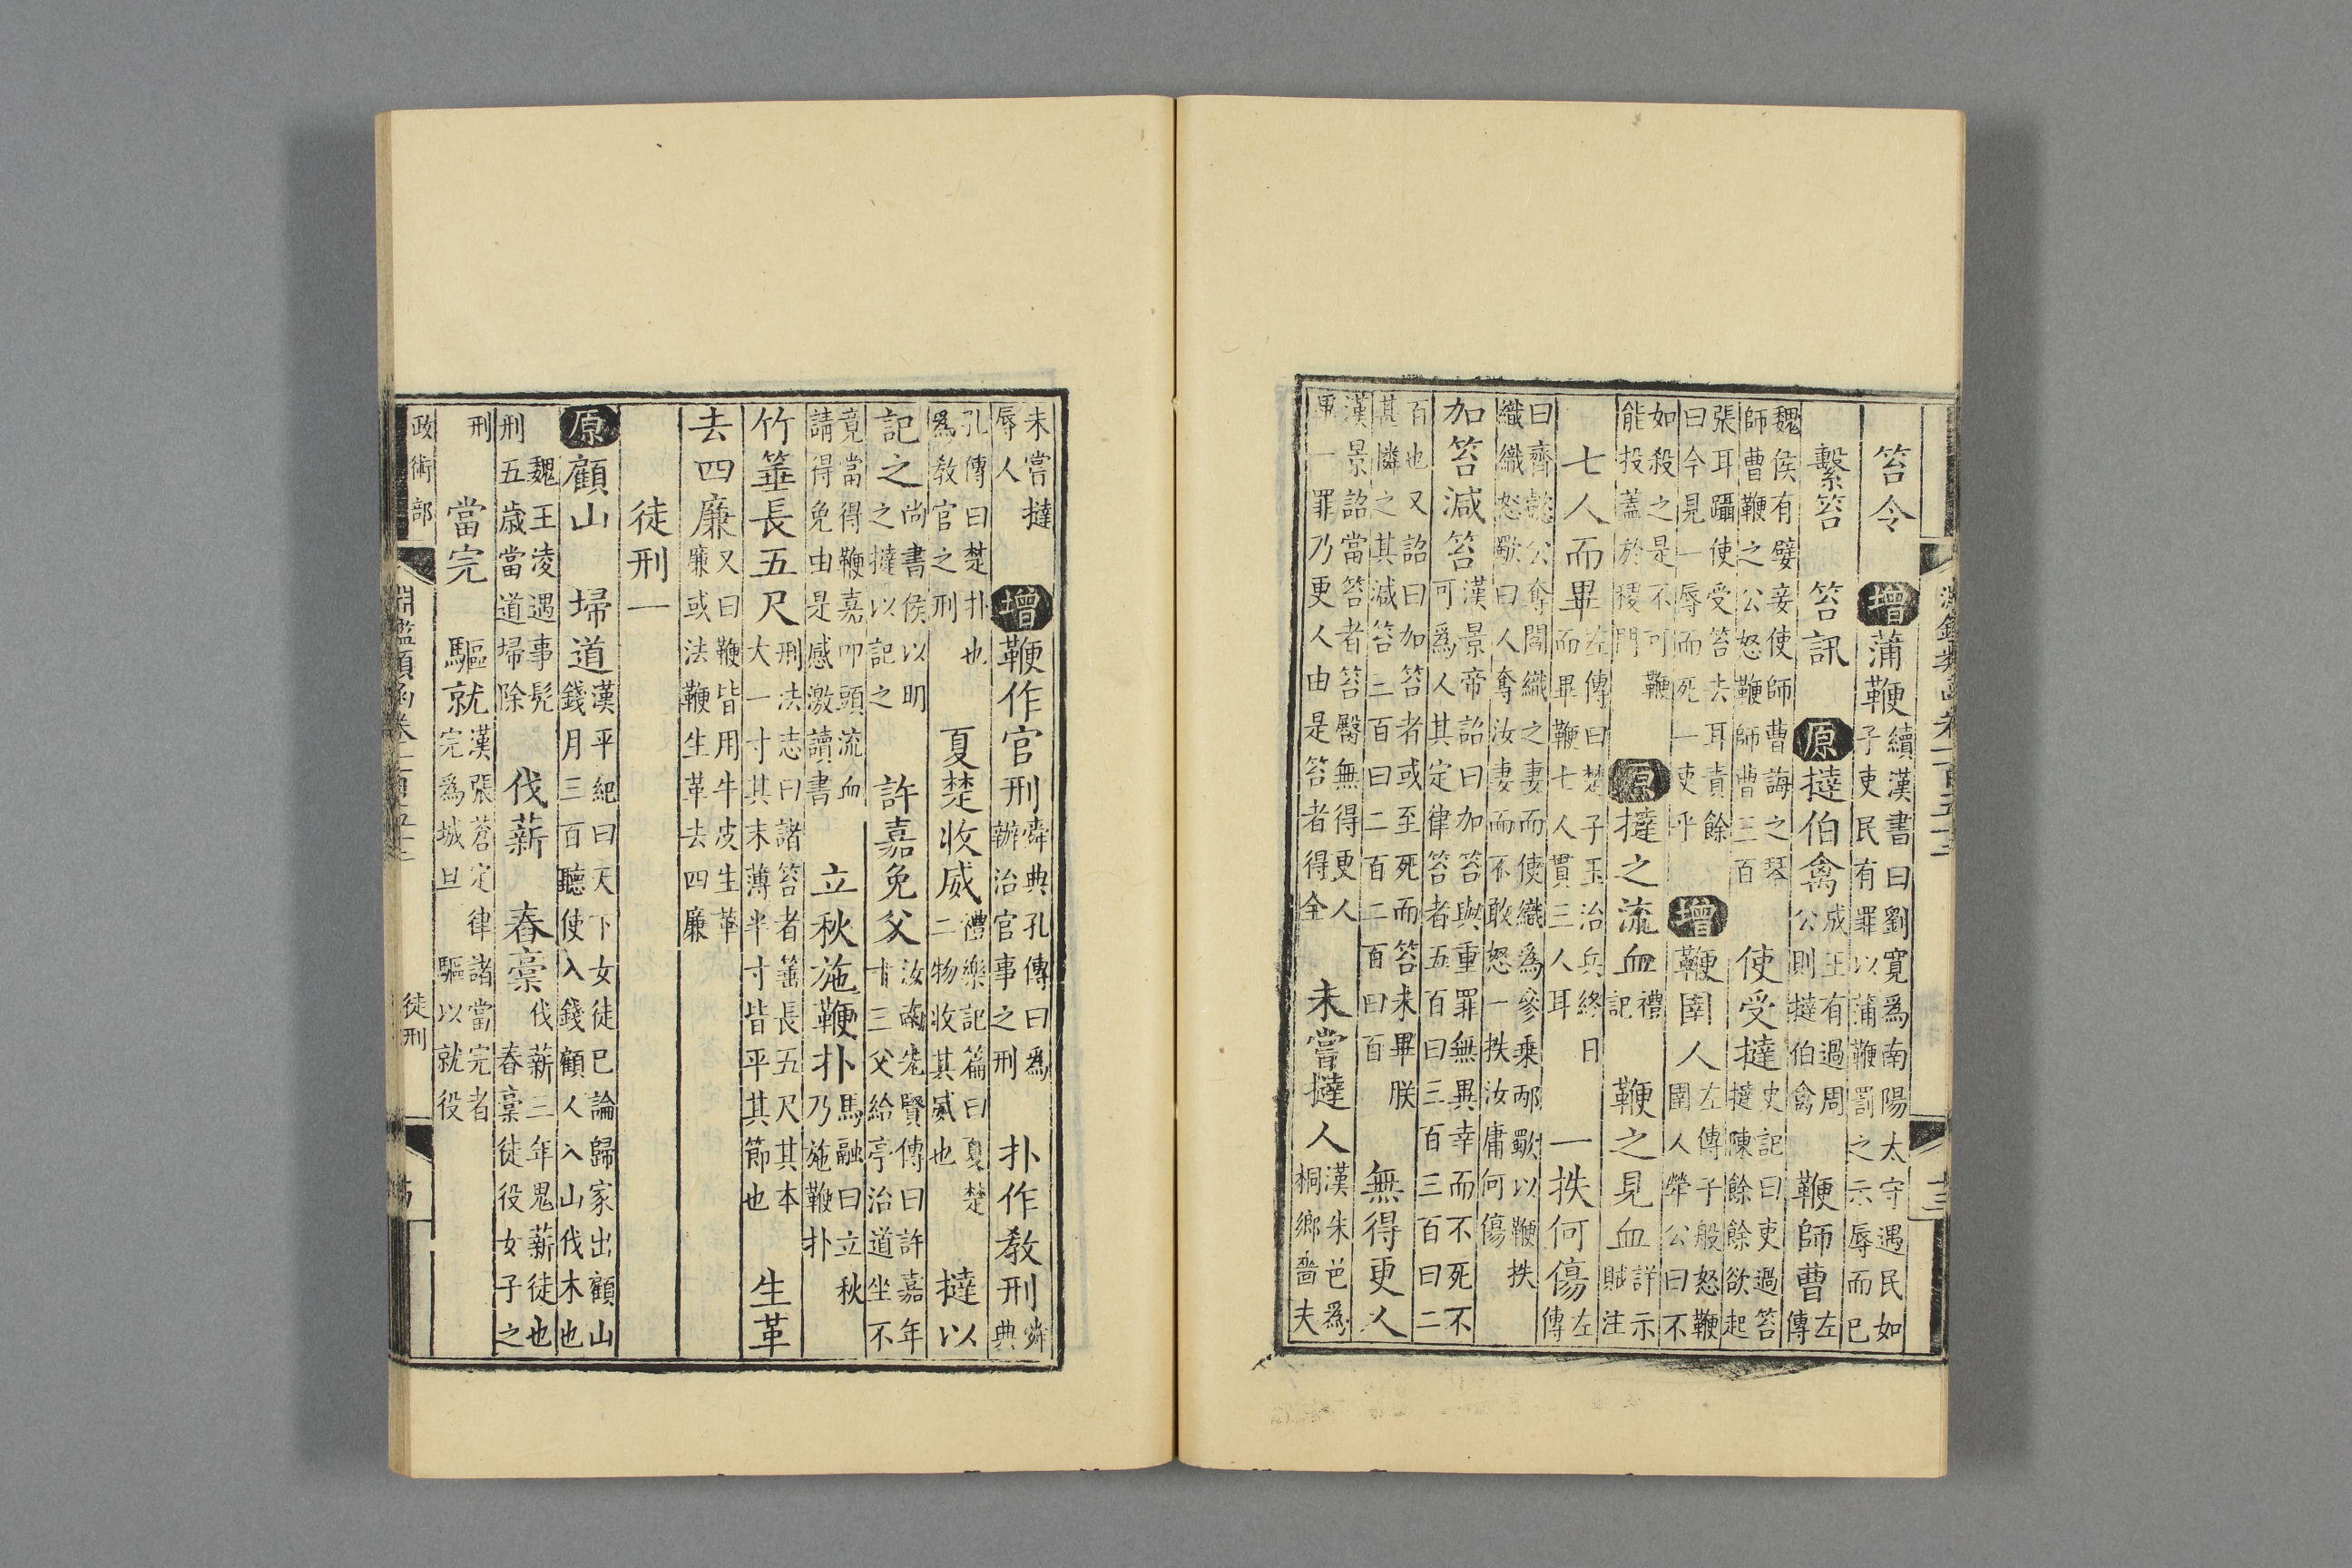 淵鑑類函卷一百五十三 十三
笞令 增蒲鞭續漢書曰劉寬為南陽太守遇民如子吏民有罪以蒲鞭罰之示辱而已
繫笞 笞訊 原撻伯禽成王有過周公則撻伯禽 鞭師曹左傳
魏侯有嬖妾使師曹誨之琴師曹鞭之公怒鞭師曹三百 使受撻史記曰吏過笞撻陳餘餘欲起
張耳躡使受笞去耳責餘曰今見一辱而死一吏乎 增鞭圉人左傳子般怒鞭圉人犖公曰不
如殺之是不可鞭能投蓋於稷門 原撻之流血禮記 鞭之見血詳示賊注
七人而畢左傳曰楚子玉治兵終日而畢鞭七人貫三人耳 一抶何傷左傳
曰齊懿公奪閻織之妻而使織為參乗邴歜以鞭抶織織怒歜曰人奪汝妻而不敢怒一抶汝庸何傷
加笞減笞漢景帝詔曰加笞與重罪無異幸而不死不可為人其定律笞者五百曰三百三百曰二
百也又詔曰加笞者或至死而笞未畢朕其憐之其減笞二百曰二百二百曰百 無得更人
漢景詔當笞者笞臀無得更人畢一罪乃更人由是笞者得全 未嘗撻人漢朱邑為桐鄉嗇夫
未嘗撻辱人 增鞭作官刑舜典孔傳曰為辦治官事之刑 扑作教刑舜典
孔傳曰楚扑也為教官之刑 夏楚收威禮樂記篇曰夏楚二物收其威也 撻以
記之尚書侯以明之撻以記之 許嘉免父汝南先賢傳曰許嘉年十三父給亭治道坐不
竟當得鞭嘉叩頭流血請得免由是感激讀書 立秋施鞭扑馬融曰立秋乃施鞭扑
竹箠長五尺刑法志曰諸笞者箠長五尺其本大一寸其末薄半寸皆平其節也 生革
去四廉又曰鞭皆用牛皮生革廉或法鞭生革去四廉
徒刑一
原顧山 埽道漢平紀曰天下女徒已論歸家出顧山錢月三百聽使入錢顧人入山伐木也
魏王淩遇事髡刑五歲當道埽除 伐薪 舂稾伐薪三年鬼薪徒也舂稾徒役女子之
刑 當完 驅就漢張蒼定律諸當完者完為城旦驅以就役
政術部 淵鑑類函卷一百五十三 徒刑